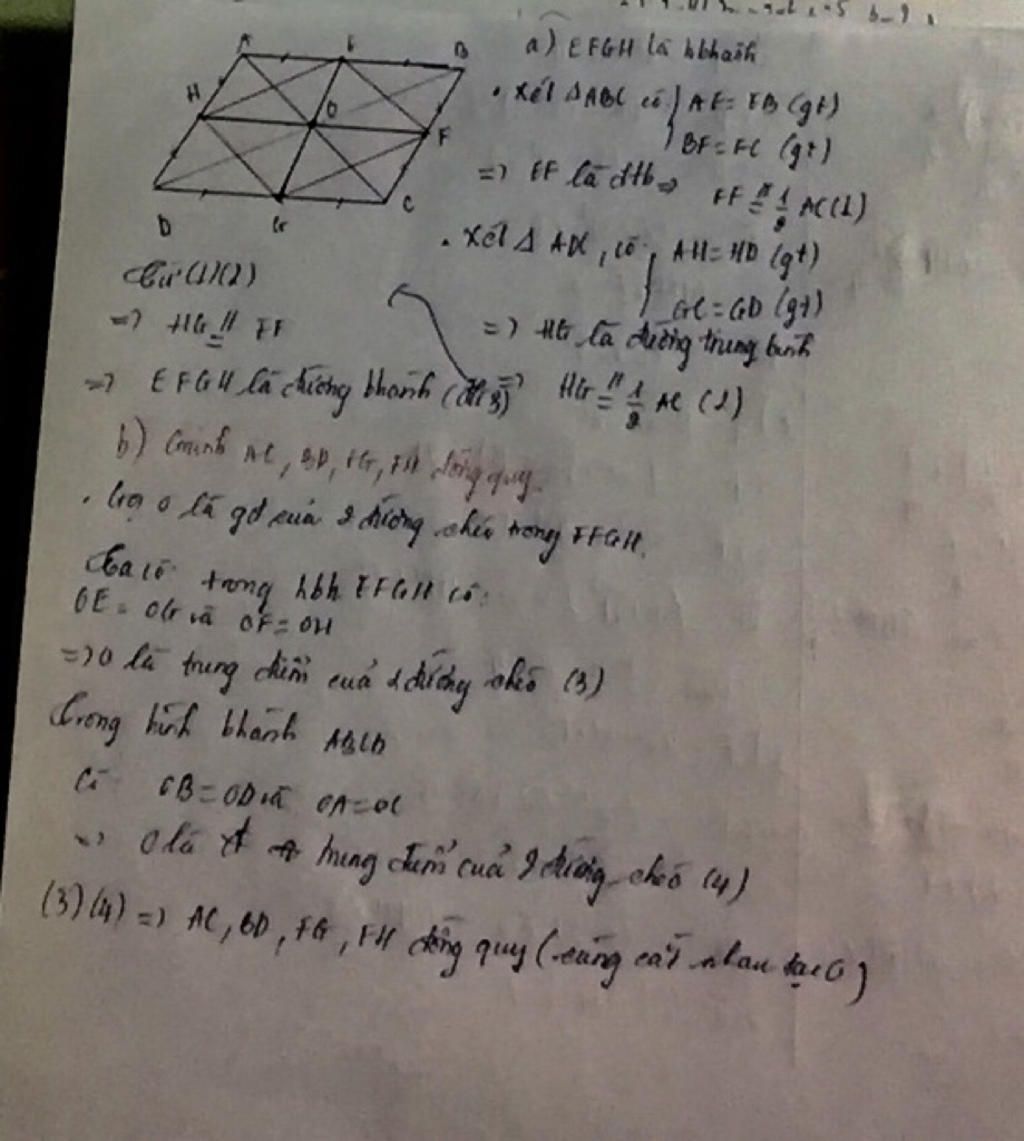 A E B
H O F
D G C
a) EFGH là hbhành
. Xét ΔABC có } AE = EB (gt)
BF = FC (gt)
=> EF là đtb => EF //= 1/2 AC (1)
. Xét Δ ADC, có { AH = HD (gt)
GC = GD (gt)
=> HG là đường trung bình
=> HG //= 1/2 AC (2)
Từ (1)(2)
=> HG //= EF
=> EFGH là đường bhành
b) Cminh AC, BD, EG, FH đồng quy.
. Gọi O là gđ của 2 đường chéo trong EFGH.
Ta có trong hbh EFGH có:
OE = OG và OF = OH
=> O là trung điểm của 2 đường chéo (3)
Trong hình bhành ABCD
Có OB = OD và OA = OC
=> O là trung điểm của 2 đường chéo (4)
(3)(4) => AC, BD, EG, FH đồng quy (cùng cắt nhau tại O)